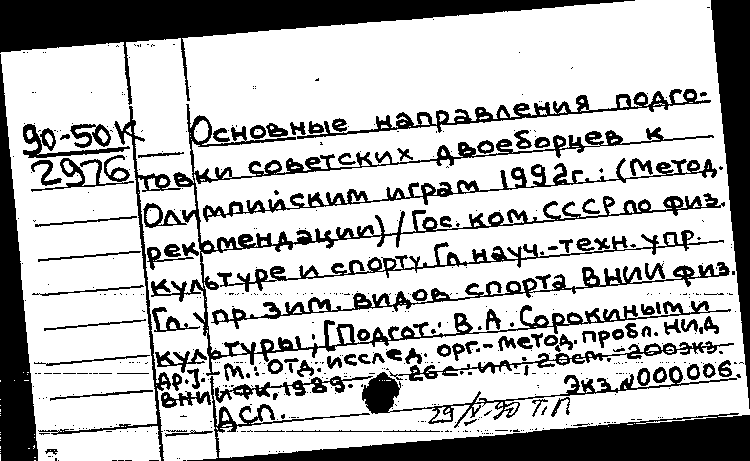 90-50К
2976
Основные направления подго-
товки советских двоеборцев к
Олимпийским играм 1992г.: (Метод.
рекомендации) / Гос. ком. СССР по физ.
культуре и спорту. Гл. науч.-техн. упр.
Гл. упр. зим. видов спорта, ВНИИ физ.
культуры; [Подгот.: В.А. Сорокиным и
др.]. - М.: Отд. исслед. орг.-метод. пробл. НИД
ВНИИФК, 1989. - 26 с.: ил.; 20см. - 200экз.
Экз. №000006.
ДСП.
29/V-90 Т.П